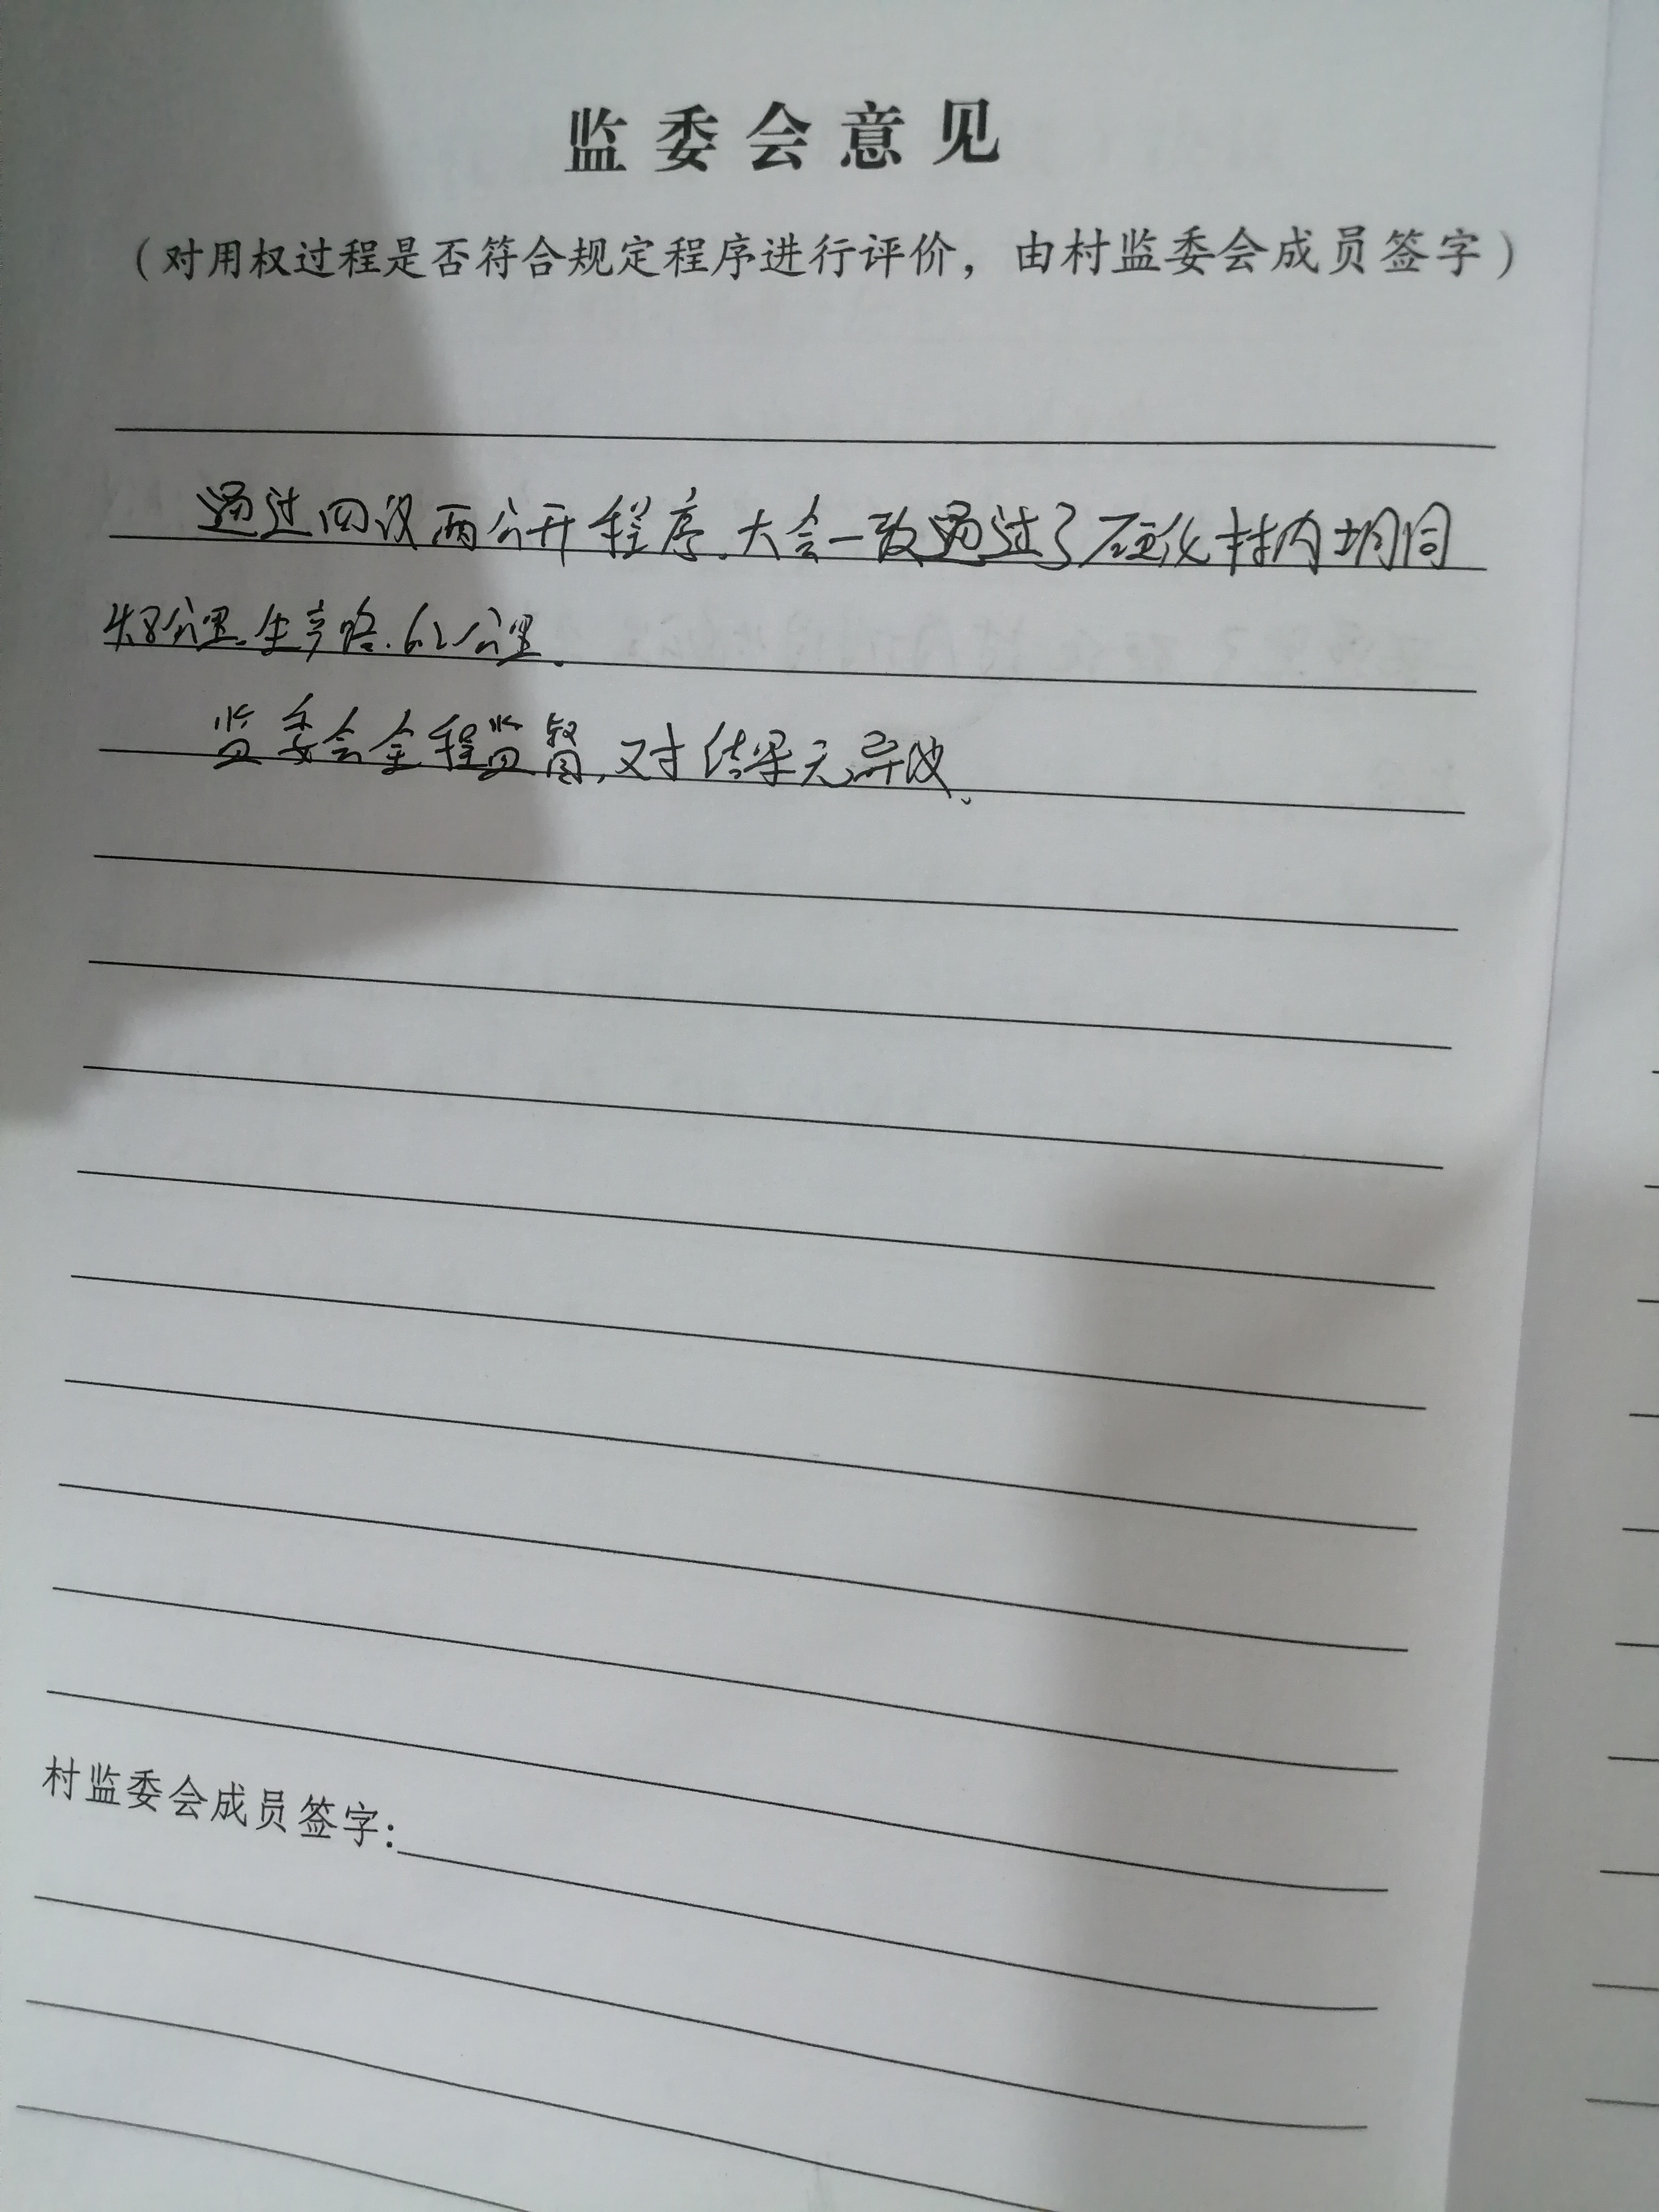 监委会意见
（对用权过程是否符合规定程序进行评价，由村监委会成员签字）
通过四议两公开程序、大会一致通过了硬化村内胡同
4.8公里、生产路.6.2公里、
监委会全程监督,对结果无异议、
村监委会成员签字: